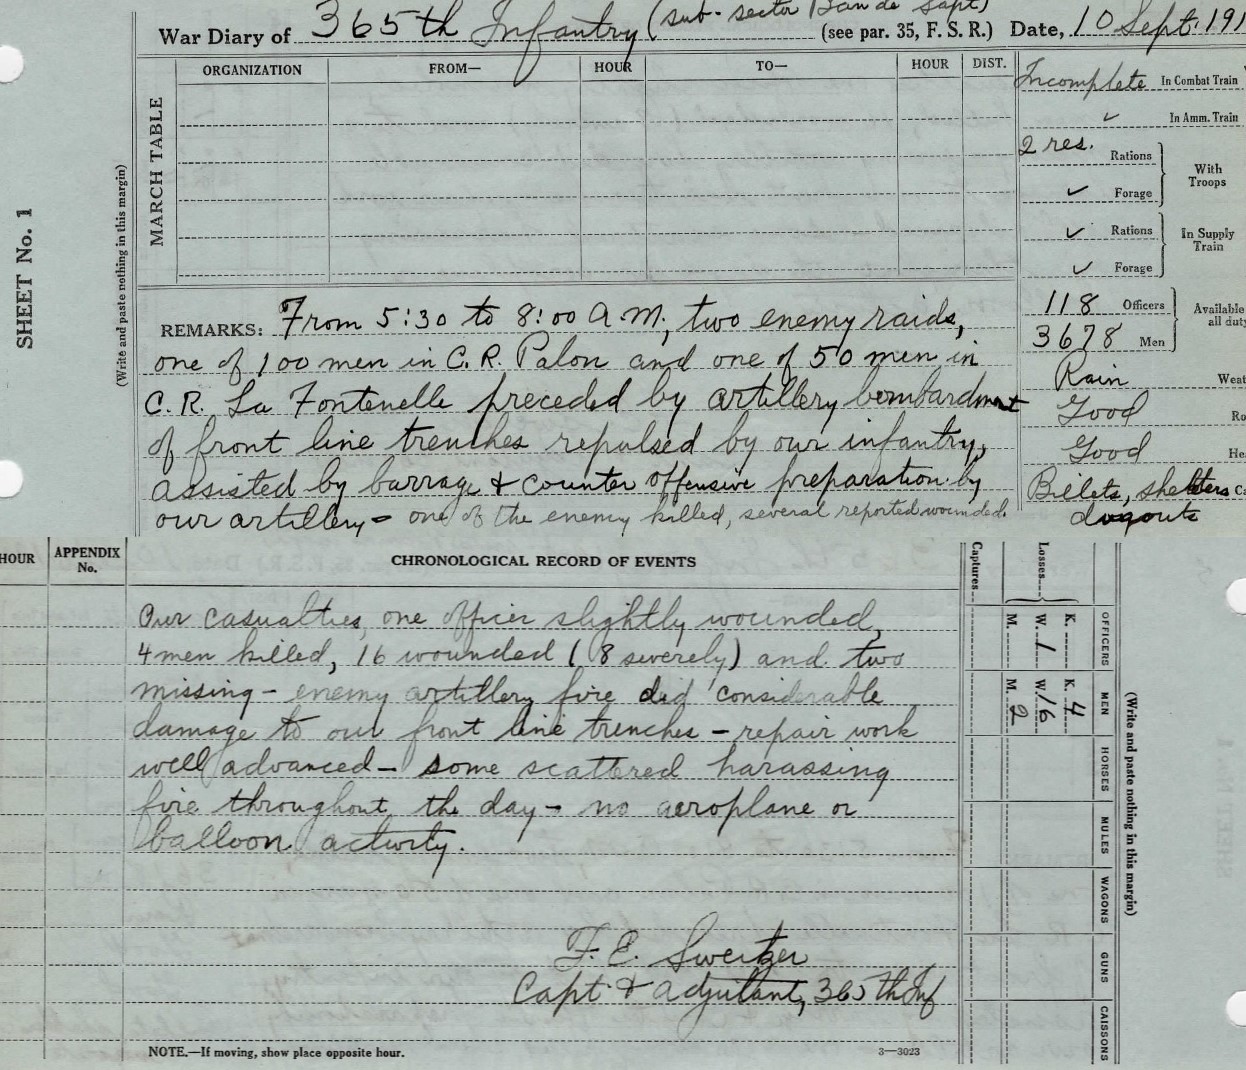 War Diary of 365th Infantry (sub-sector Ban de Sapt) (see par. 35, F. S. R.) Date, 10 Sept. 191
SHEET No. 1
(Write and paste nothing in this margin)
MARCH TABLE
ORGANIZATION FROM— HOUR TO— HOUR DIST.
Incomplete In Combat Train
✓ In Amm. Train
2 res. Rations
✓ Forage
With Troops
✓ Rations
✓ Forage
In Supply Train
118 Officers
3678 Men
Available
all duty
Rain Weat
Good Ro
Good He
Billets, shelters Ca
dugouts
REMARKS: From 5:30 to 8:00 A.M., two enemy raids,
one of 100 men in C.R. Palon and one of 50 men in
C.R. La Fontenelle preceded by artillery bombardment
of front line trenches repulsed by our infantry,
assisted by barrage & counter offensive preparation by
our artillery - one of the enemy killed, several reported wounded.
HOUR APPENDIX No. CHRONOLOGICAL RECORD OF EVENTS
Our casualties, one officer slightly wounded,
4 men killed, 16 wounded (8 severely) and two
missing - enemy artillery fire did considerable
damage to our front line trenches - repair work
well advanced - some scattered harassing
fire throughout the day - no aeroplane or
balloon activity.
F. E. Sweitzer
Capt & Adjutant, 365th Inf
NOTE.—If moving, show place opposite hour.
3—3023
Captures
Losses
K.
W. 1
M.
OFFICERS
K. 4
W. 16
M. 2
MEN
HORSES
MULES
WAGONS
GUNS
CAISSONS
(Write and paste nothing in this margin)